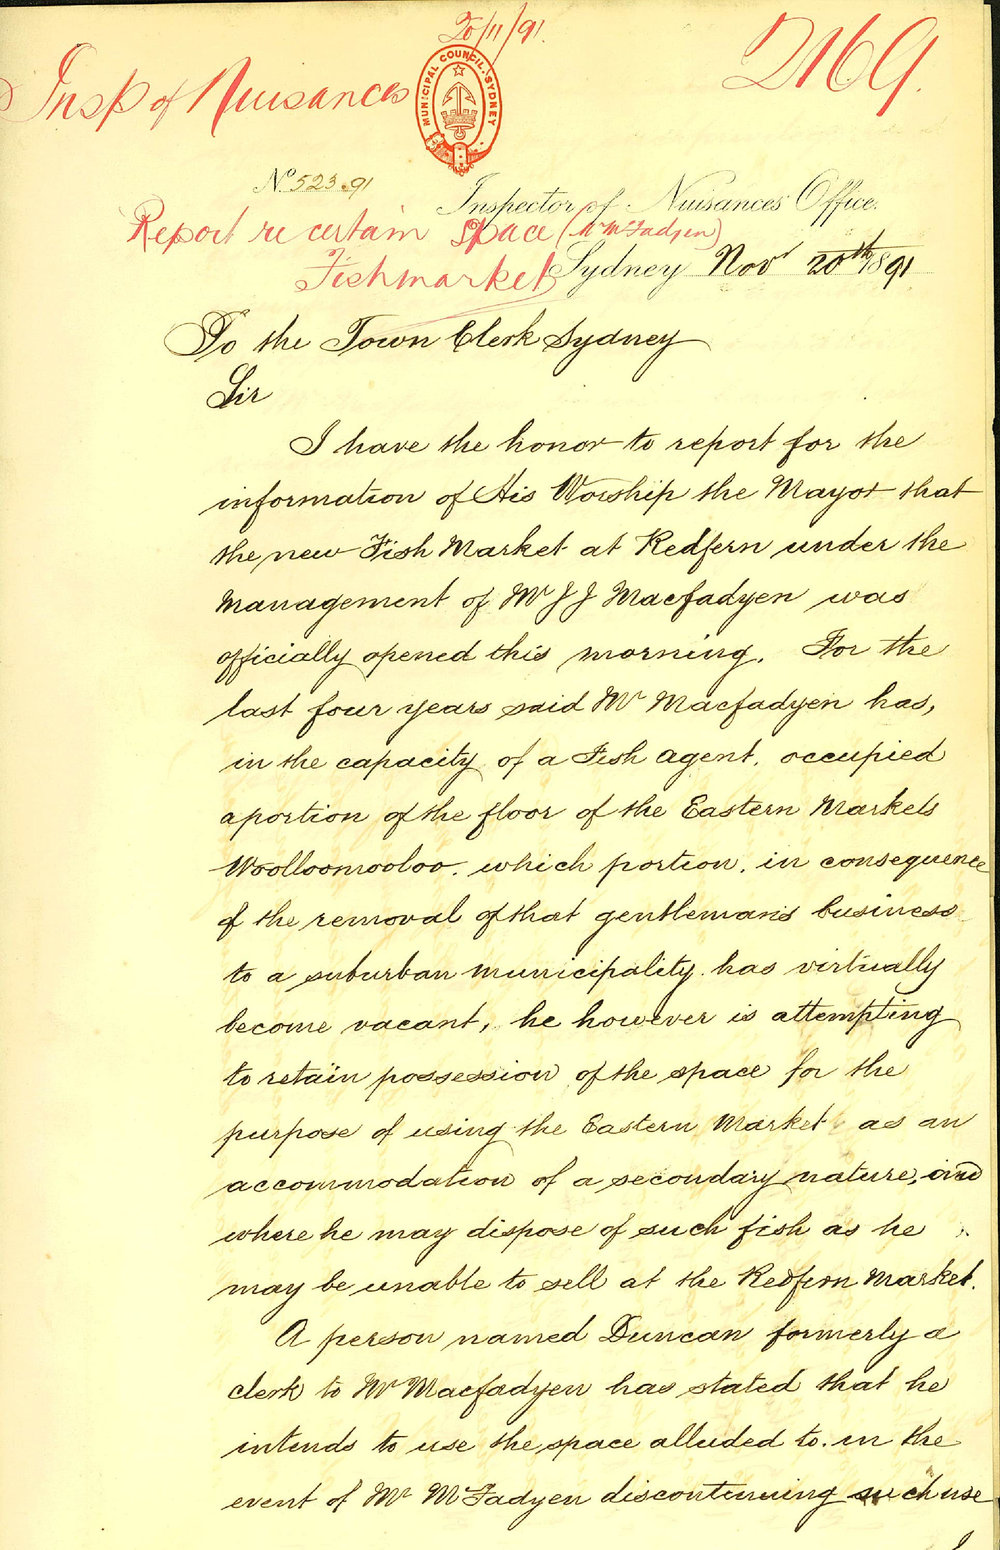 20/11/91.
Insp of Nuisances
2169.
MUNICIPAL COUNCIL. SYDNEY
No 523.91
Inspector of Nuisances Office.
Report re certain space (Mr McFadyen)
Fishmarket
Sydney Novr 20th 1891
To the Town Clerk Sydney
Sir
I have the honor to report for the
information of His Worship the Mayor that
the new Fish Market at Redfern under the
Management of Mr J J Macfadyen was
officially opened this morning. For the
last four years said Mr Macfadyen has,
in the capacity of a Fish Agent, occupied
a portion of the floor of the Eastern Markets
Woolloomooloo. which portion, in consequence
of the removal of that gentleman's business
to a suburban municipality has virtually
become vacant, he however is attempting
to retain possession of the space for the
purpose of using the Eastern Market as an
accommodation of a secondary nature, and
where he may dispose of such fish as he
may be unable to sell at the Redfern Market.
A person named Duncan formerly a
clerk to Mr Macfadyen has stated that he
intends to use the space alluded to. in the
event of Mr McFadyen discontinuing such use